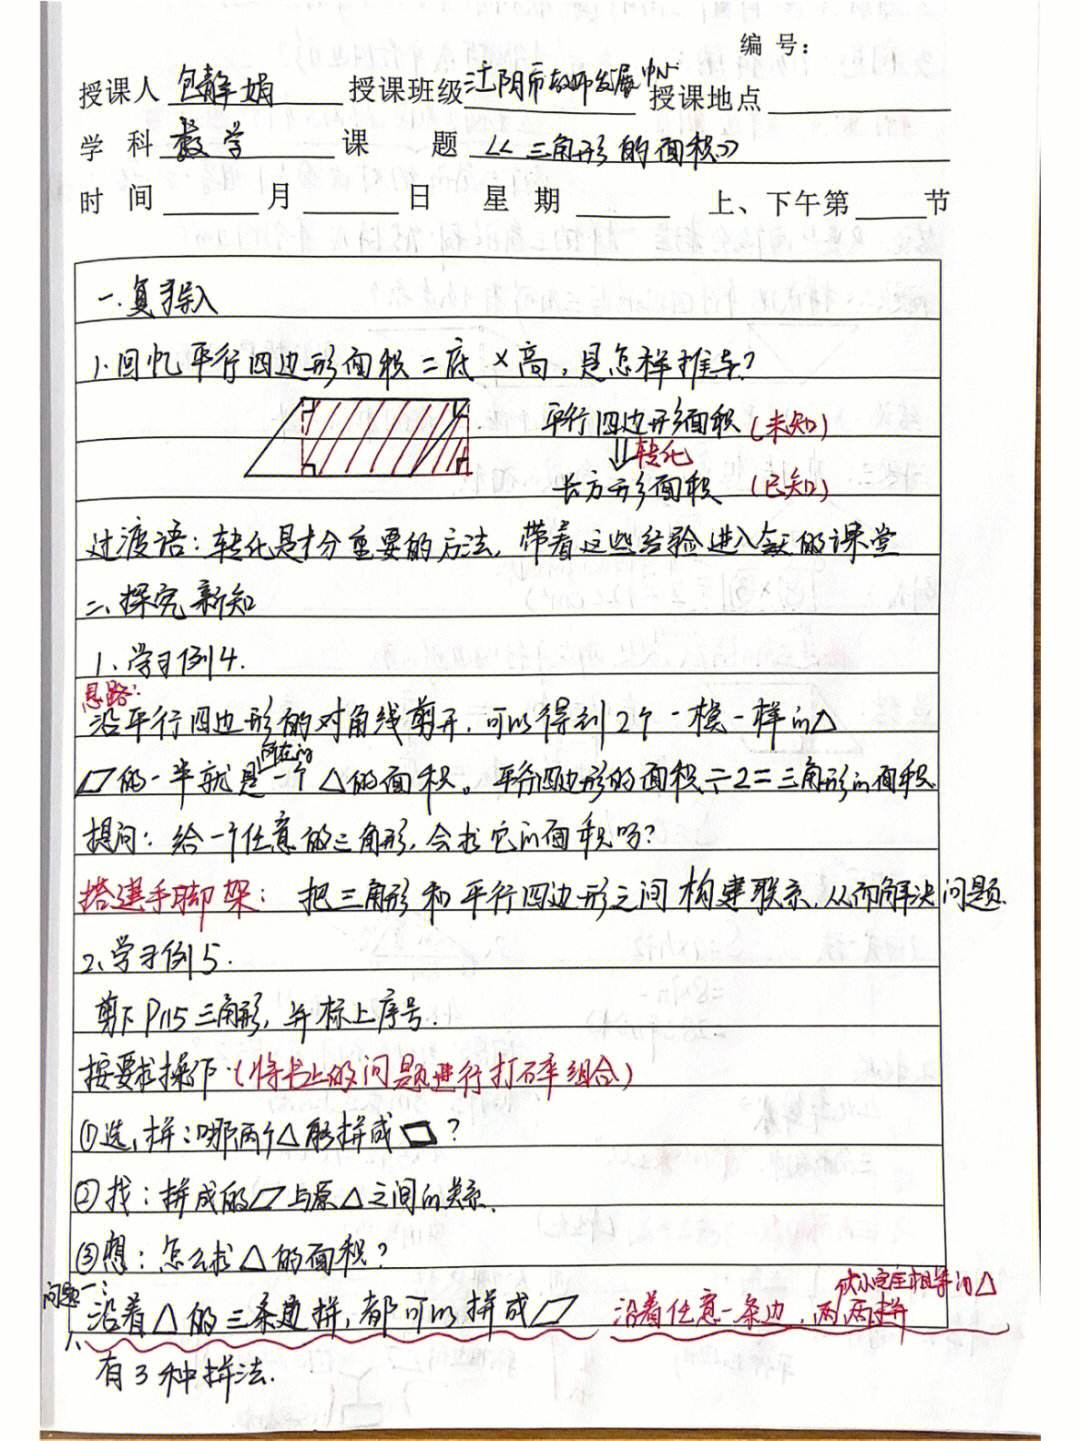 编 号：
授课人 包静娟 授课班级 江阴市教师发展中心 授课地点
学 科 数学 课 题 《三角形的面积》
时 间 月 日 星 期 上、下午第 节
一.复习导入
1.回忆平行四边形面积=底×高,是怎样推导?
平行四边形面积(未知)
⇓转化
长方形面积 (已知)
过渡语:转化是十分重要的方法,带着这些经验进入今天的课堂
二、探究新知
1、学习例4.
思路:
沿平行四边形的对角线剪开,可以得到2个一模一样的△
▱的一半就是所在的一个△的面积。平行四边形的面积÷2=三角形的面积
提问:给一个任意的三角形,会求它的面积吗?
搭建手脚架: 把三角形和平行四边形之间构建联系,从而解决问题.
2、学习例5.
剪下P115三角形,并标上序号.
按要求操作.(将书上的问题进行打碎组合)
①选,拼:哪两个△能拼成▱?
②找:拼成的▱与原△之间的关系.
③想:怎么求△的面积?
问题一:
沿着△的三条边拼,都可以拼成▱ 沿着任意一条边,两两拼
完全相等的△
有3种拼法.